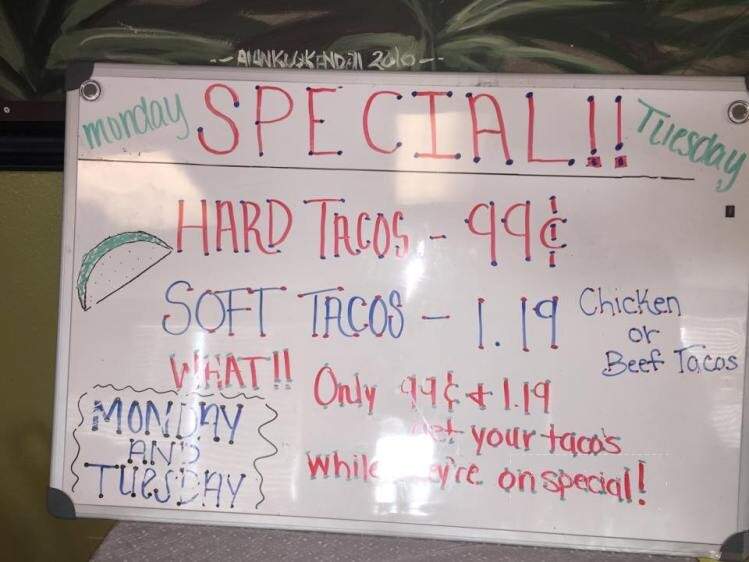 2010
monday SPECIAL!! Tuesday
HARD TACOS - 99¢
SOFT TACOS - 1.19
Chicken
or
Beef Tacos
WHAT!!
Only 99¢ & 1.19
get your taco's
while they're on special!
MONDAY
AND
TUESDAY